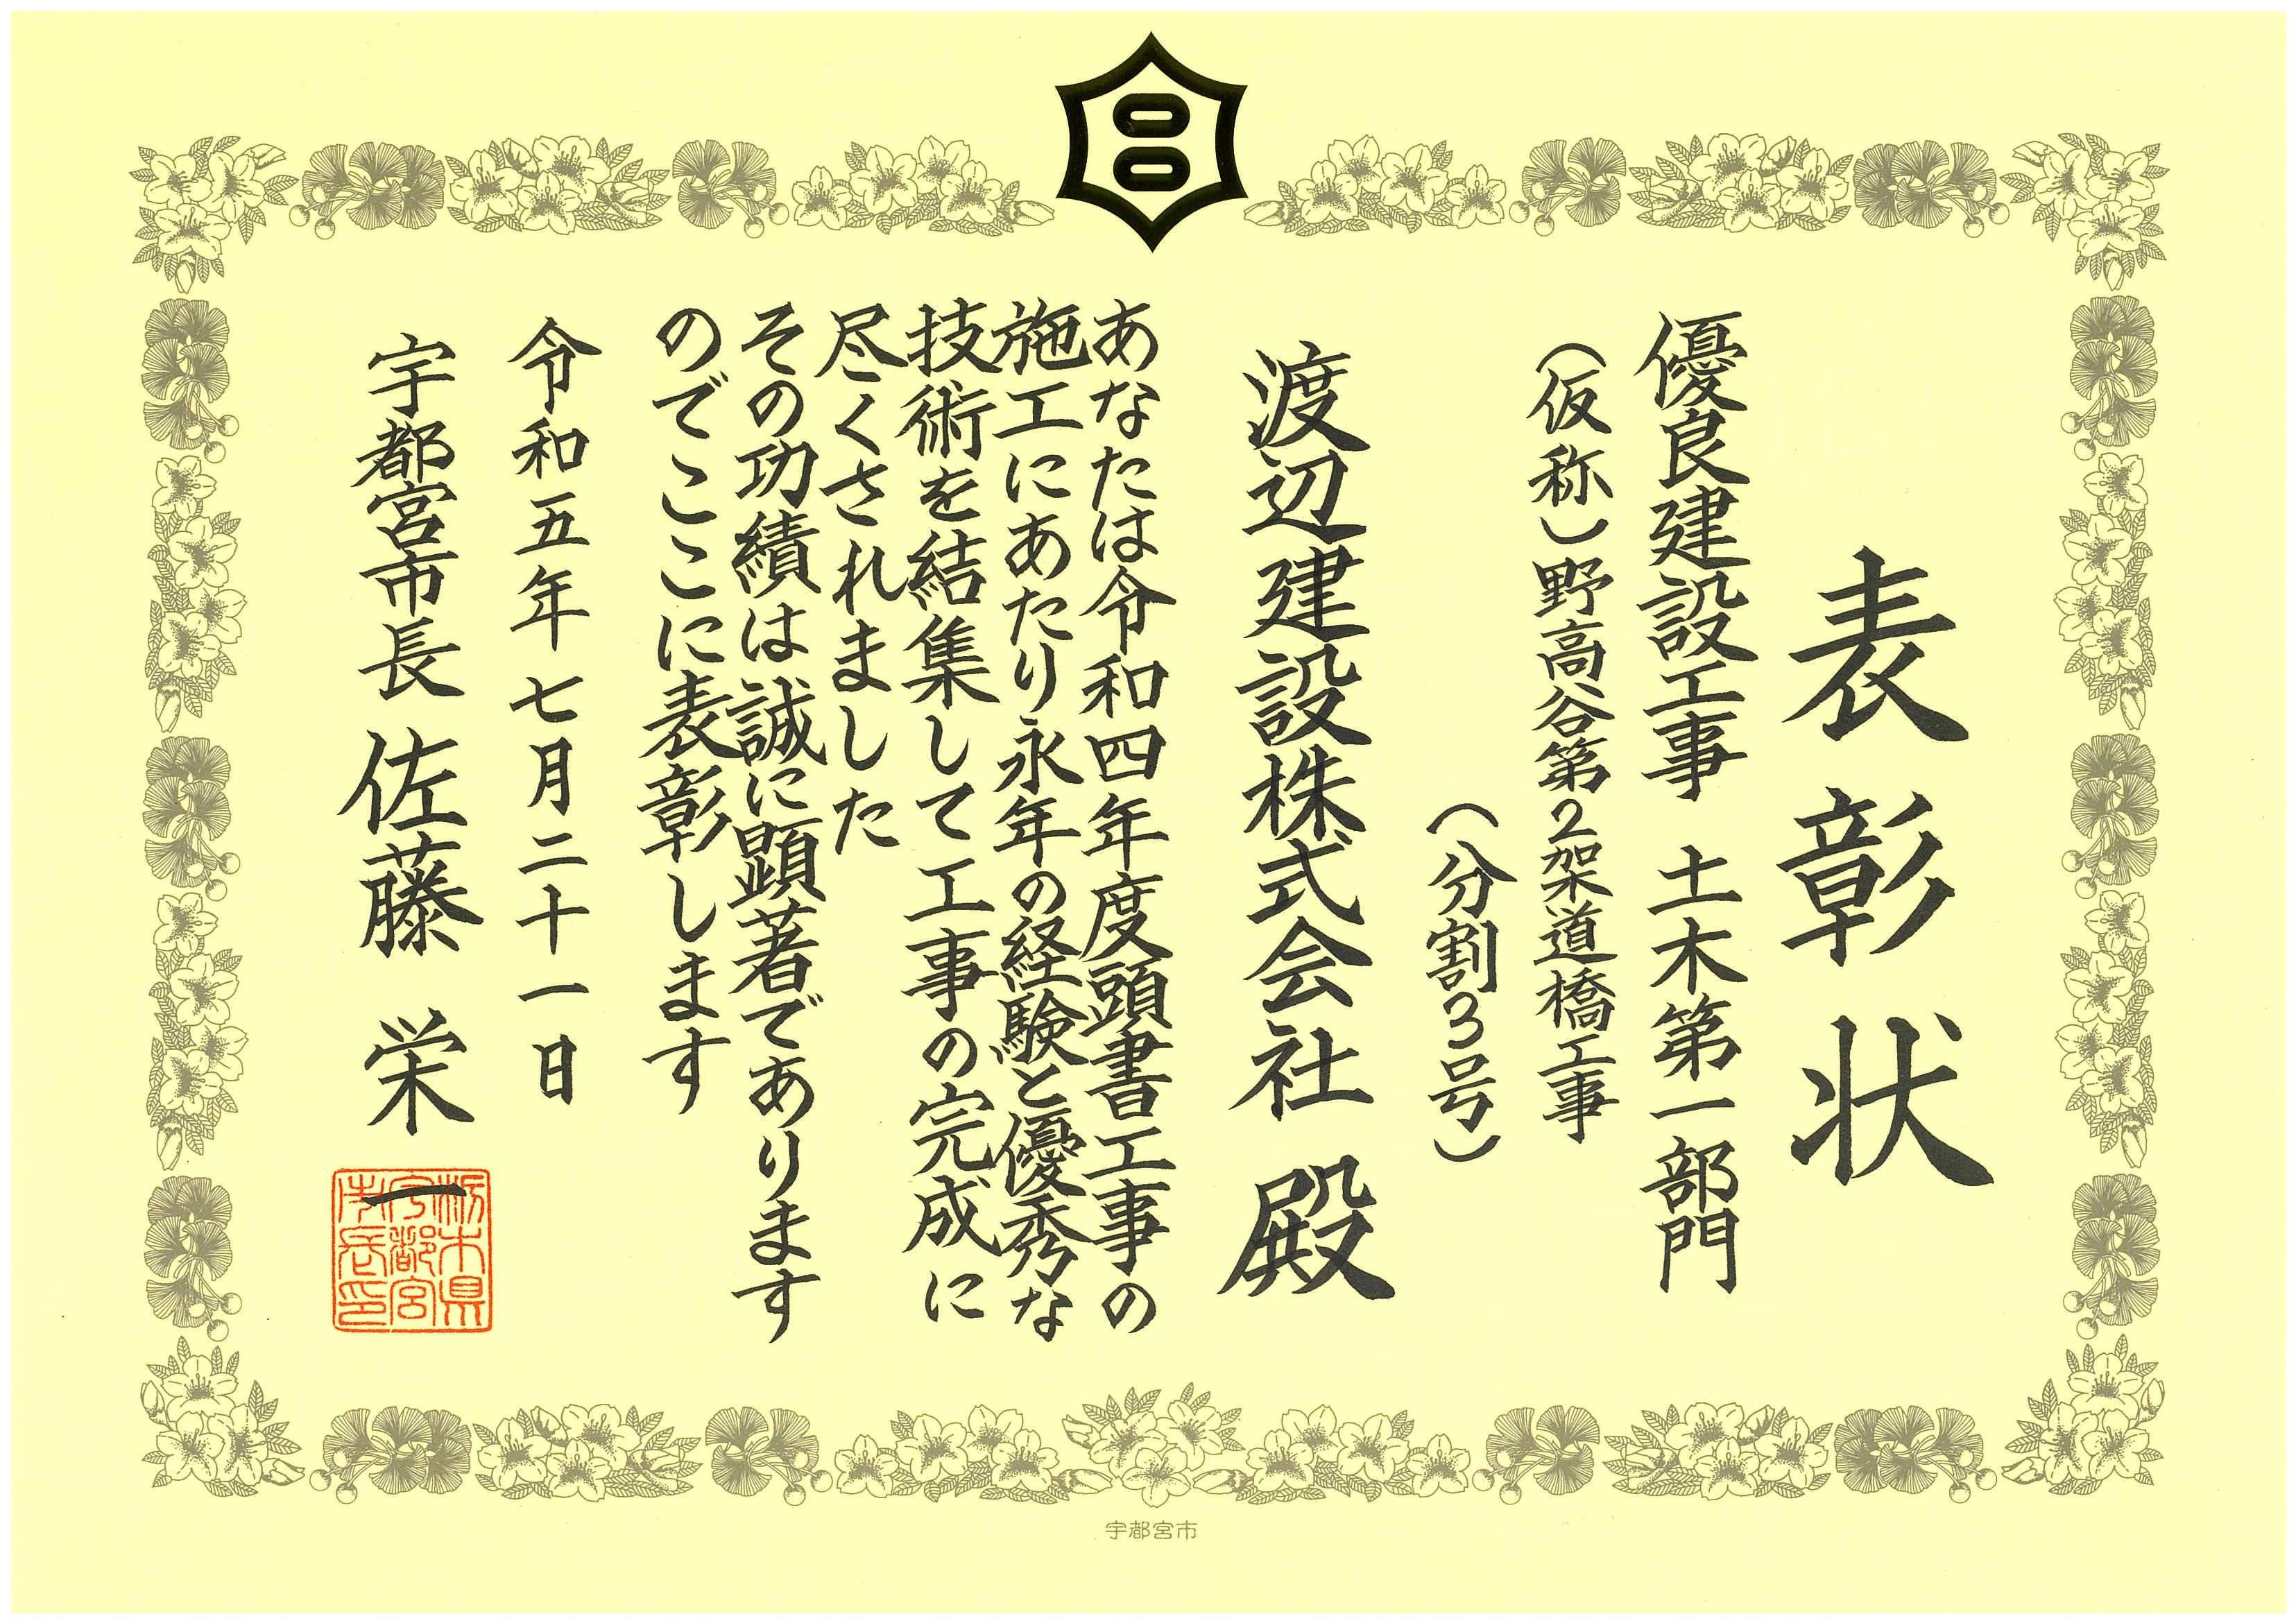 表彰状
優良建設工事 土木第一部門
（仮称）野高谷第2架道橋工事
（分割3号）
渡辺建設株式会社 殿
あなたは令和四年度頭書工事の
施工にあたり永年の経験と優秀な
技術を結集して工事の完成に
尽くされました
その功績は誠に顕著であります
のでここに表彰します
令和五年七月二十一日
宇都宮市長 佐藤 栄一
栃木県
宇都宮
市長印
宇都宮市